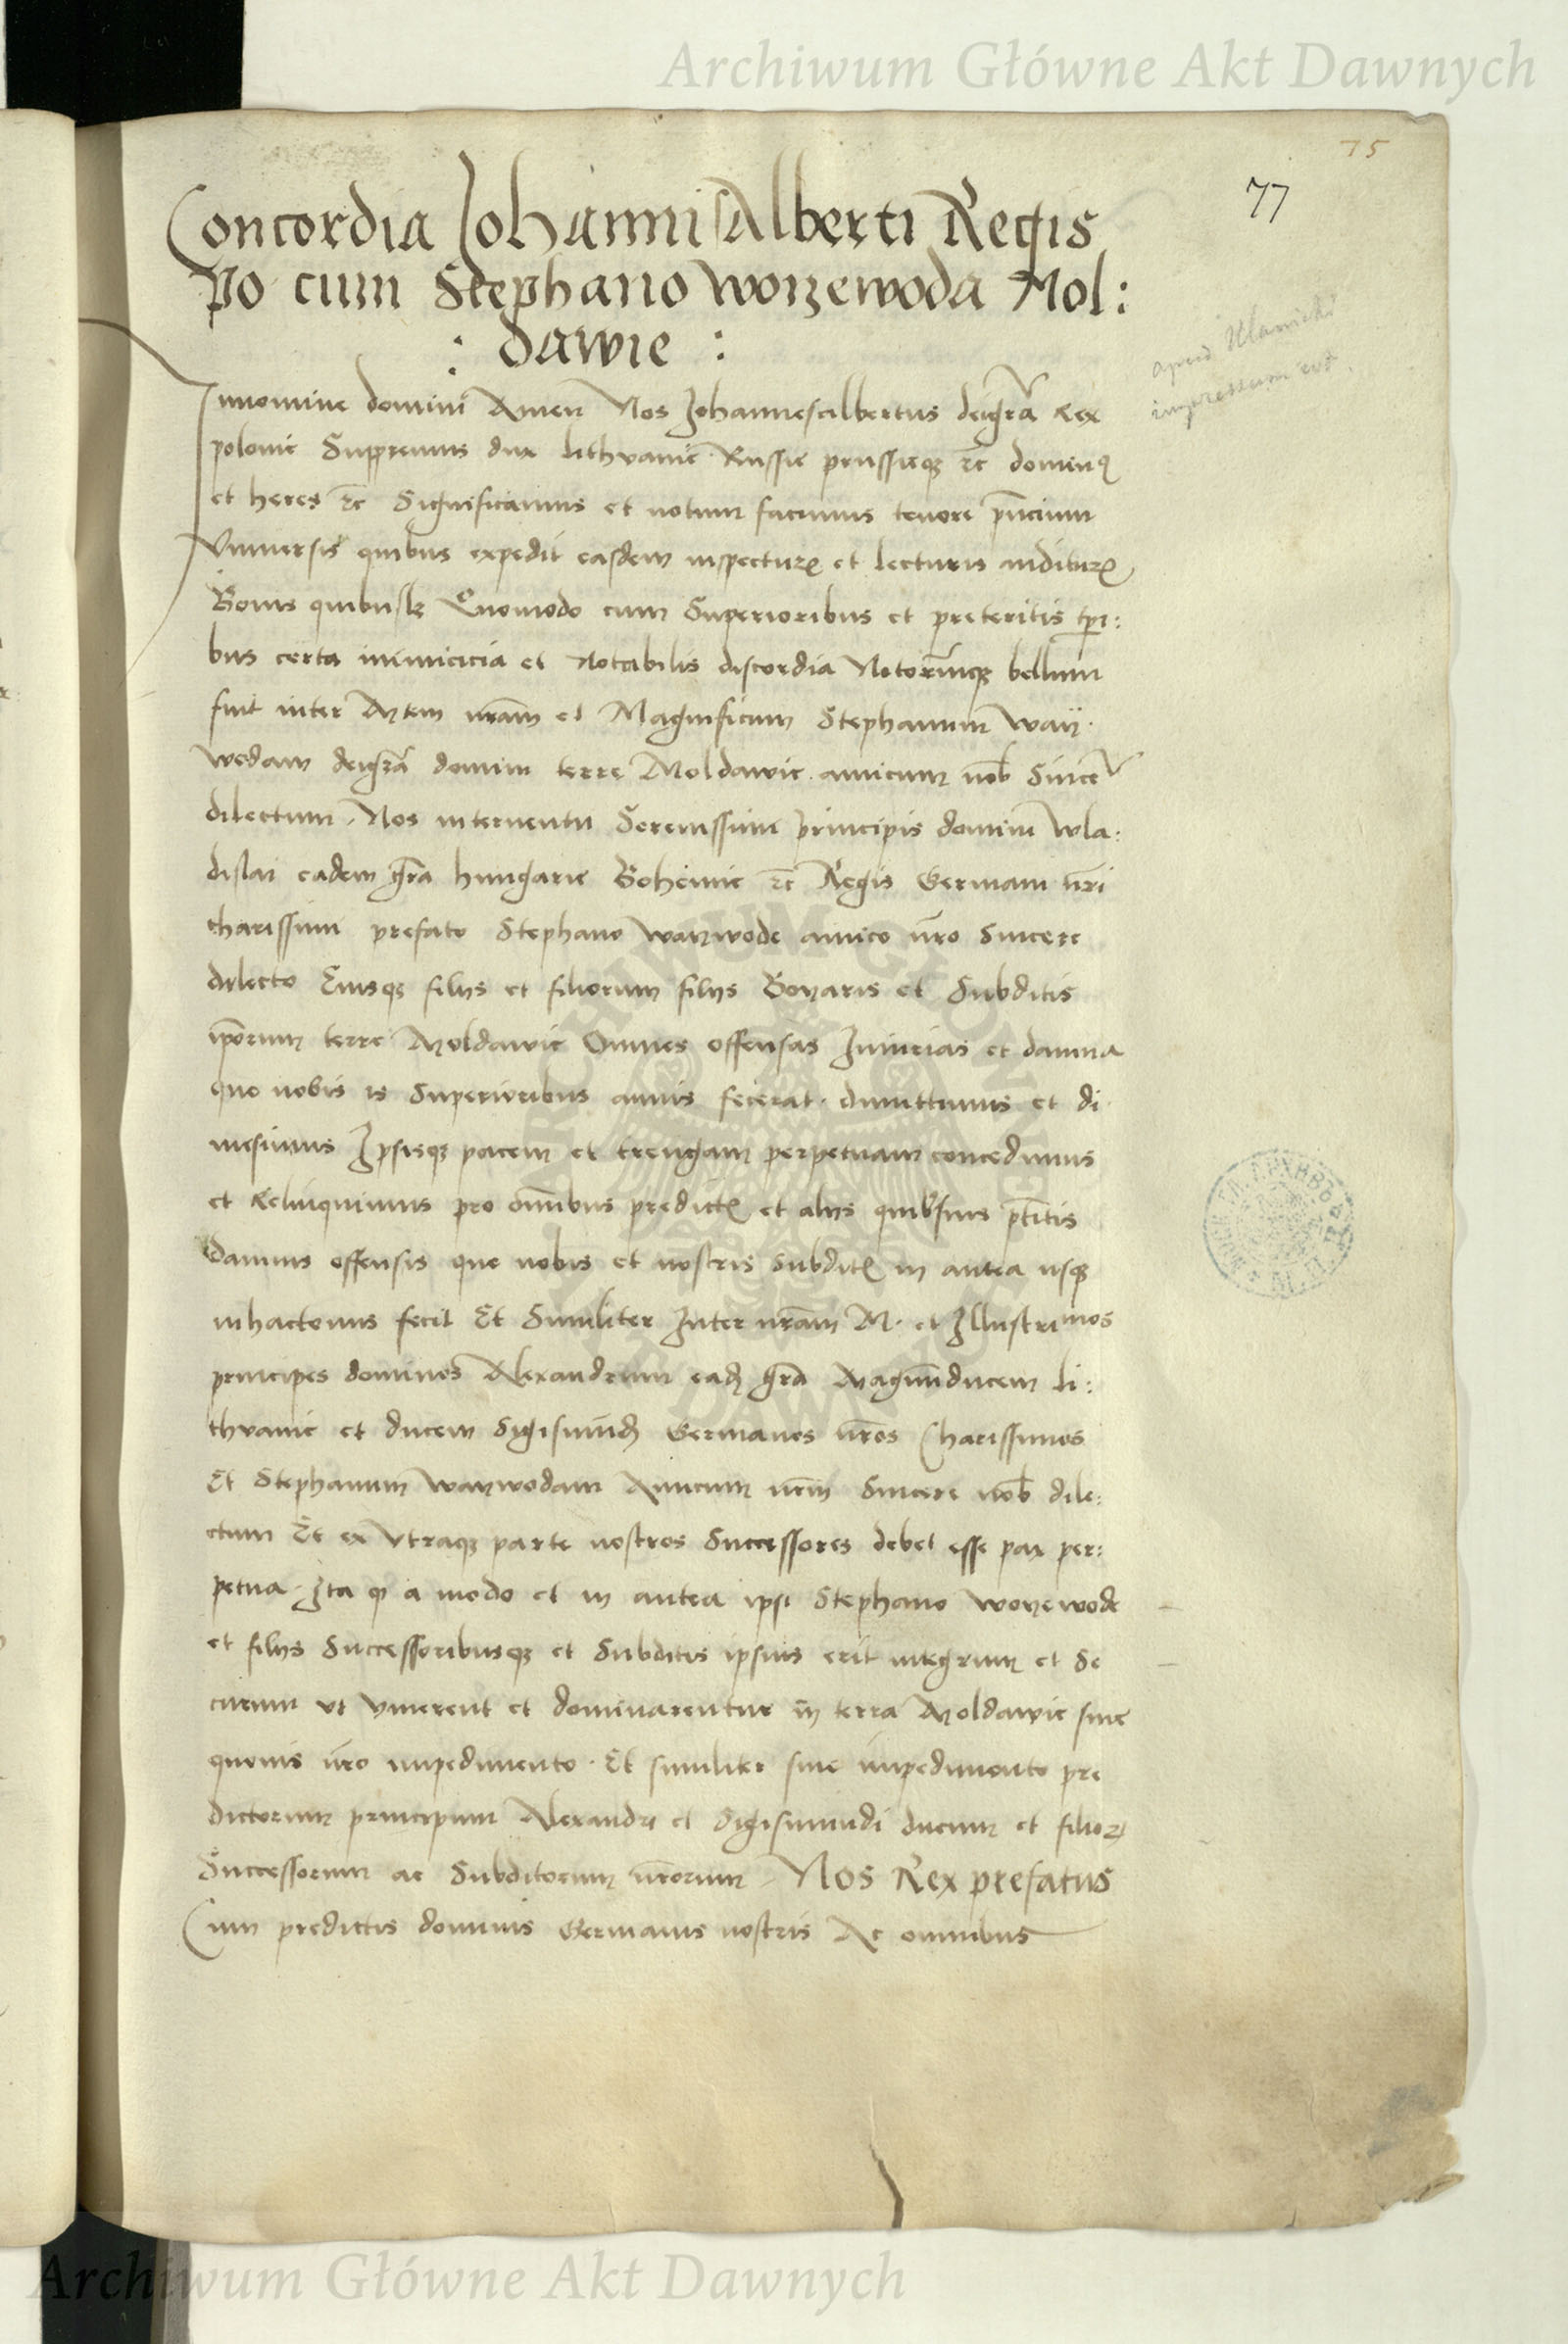 Archiwum Główne Akt Dawnych
75
77
Concordia Johannis Alberti Regis
po cum Stephano woyewoda Mol:
: dawie :
apud Ulanicki
impressum est.
Innomine domini Amen Nos Johannesalbertus deigra Rex
polonie Suppremus dux lithvanie Russie prussieqz etc dominus
et heres etc Significamus et notum facimus tenore pncium
Vniuersis quibus expedit easdem inspecturis et lecturis audituris
Bonis quibuslz Quomodo cum Superioribus et preteritis tpri:
bus certa inimicicia et Notabilis discordia Notoriumqz bellum
fuit inter Mtem nram et Magnificum Stephanum way
wedam deigra domini terre Moldawie amicum nob Sincer
dilectum. Nos interuentu Serenissimi principis domini Wla:
dislai eadem gra hungarie Bohemie etc Regis Germani nri
charissimi prefato Stephano waywode amico nro Sincere
dilecto Eiusqz filys et filiorum filys Boyaris et Subditis
iporum terre Moldawie Omnes offensas Iniurias et damna
quo nobis is Superioribus annis fecerat. dimittimus et di
mesimus Ipsisqz pacem et treugam perpetuam concedimus
et Relinquimus pro omibus predictis et alys quibsuis ptitis
damnis offensis que nobis et nostris subditis in antea usqz
inhactenus fecit Et Similiter Inter nram M. et Illustrimos
principes dominos Alexandrum eadz gra Magnuducem li:
thvanie et ducem Sigismudz Germanos nros Charissimos
Et Stephanum waywodam Amicum nrm Sincere nob dile:
ctum Et ex Vtraqz parte nostros Successores debet esse pax per:
petua. Ita qz a modo et in antea ipsi Stephano woyewode
et filys Successoribusqz et Subditis ipsius erit integrum et Se
curum vt viuerent et dominarentur in terra Moldawie sine
quouis nro impedimento. Et similiter sine impedimento pre
dictorum principum Alexandri et Sigismundi ducum et filiorz
Successorum ac Subditorum nrorum. Nos Rex prefatus
Cum predictis dominis Germanis nostris Ac omnibus
Archiwum Główne Akt Dawnych